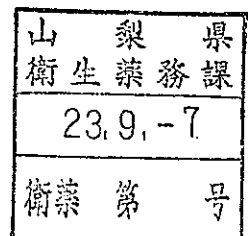 山梨県
衛生薬務課
23.9.-7
衛薬第号